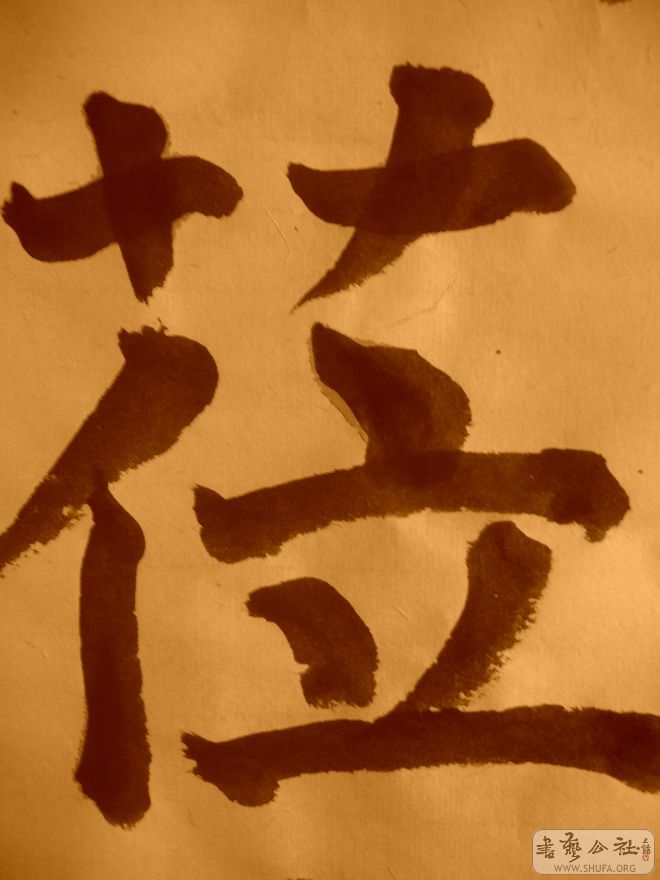 莅
書藝公社
WWW.SHUFA.ORG